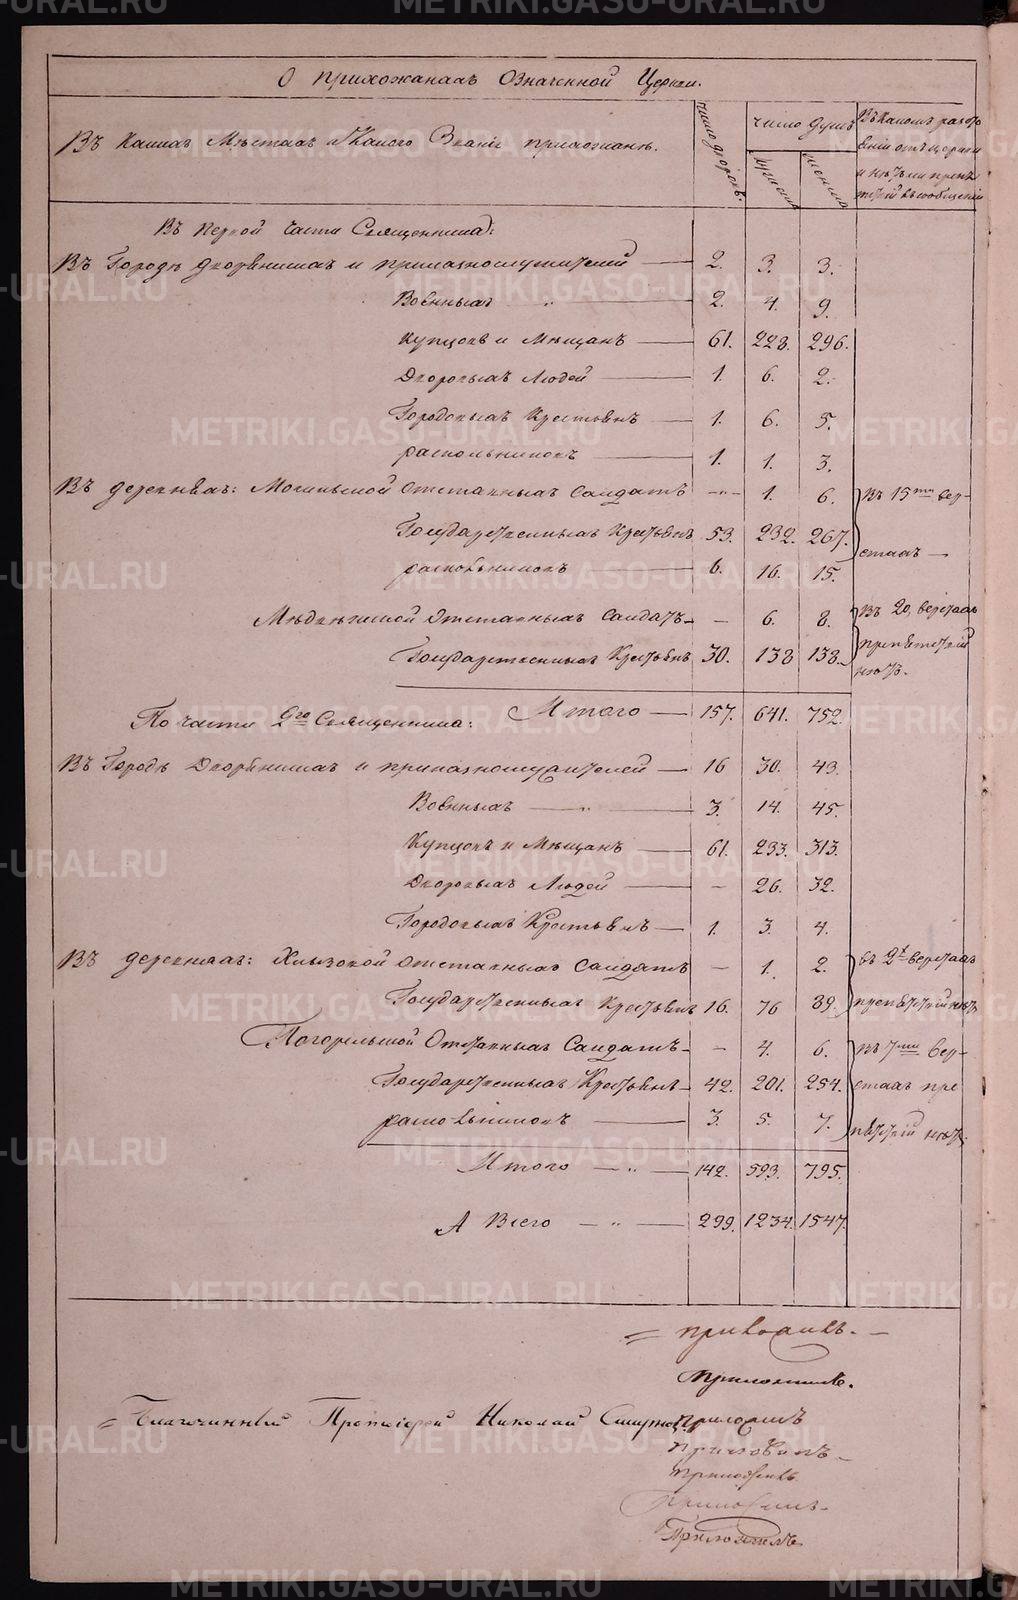 О прихожанахъ Означенной Церкви.
Въ какихъ Мѣстахъ и Какого Званія прихожанѣ.
число дворовъ.
число душъ
мужескъ
женска
Въ какомъ разсто
яніи отъ церкви
и нѣтъ ли препят
ствій въ сообщеніи
Въ первой части Священника:
Въ Городѣ Дворянскихъ и приказнослужителей — 2. 3. 3.
Военныхъ „ — 2. 4. 9.
Купцовъ и Мѣщанъ — 61. 228. 296.
Дворовыхъ Людей — 1. 6. 2.
Городовыхъ Крестьянъ — 1. 6. 5.
раскольниковъ — 1. 1. 3.
Въ деревняхъ: Макиньиной Отставныхъ Солдатъ -„- 1. 6. Въ 15ти вер-
Государственныхъ Крестьянъ 53. 232. 267. стахъ —
раскольниковъ — 6. 16. 15.
Отставныхъ Солдатъ - — 6. 8. Въ 20, верстахъ
Государственныхъ Крестьянъ 30. 138 138. препятствій
нѣтъ.
Итого — 157. 641. 752.
По части 2го Священника:
Въ Городѣ Дворянскихъ и приказнослужителей — 16 30. 43.
Военныхъ — „ — 3. 14. 45.
Купцовъ и Мѣщанъ — 61. 233. 313.
Дворовыхъ Людей — - 26. 32.
Городовыхъ Крестьянъ — 1. 3. 4.
Въ деревняхъ: Хлызовой отставныхъ Солдатъ — 1. 2. въ 2хъ верстахъ
Государственныхъ Крестьянъ 16. 76 89. препятствій нѣтъ.
Погорельской Отставныхъ Солдатъ - — 4. 6. въ 7ми вер-
Государственныхъ Крестьянъ - 42. 201. 254. стахъ пре
раскольниковъ — 3. 5. 7. пятствій нѣтъ.
Итого — „ — 142. 593. 795.
А Всего — „ — 299. 1234. 1547.
Благочинный Протоіерей Николай Смирновъ
METRIKI.GASO-URAL.RU